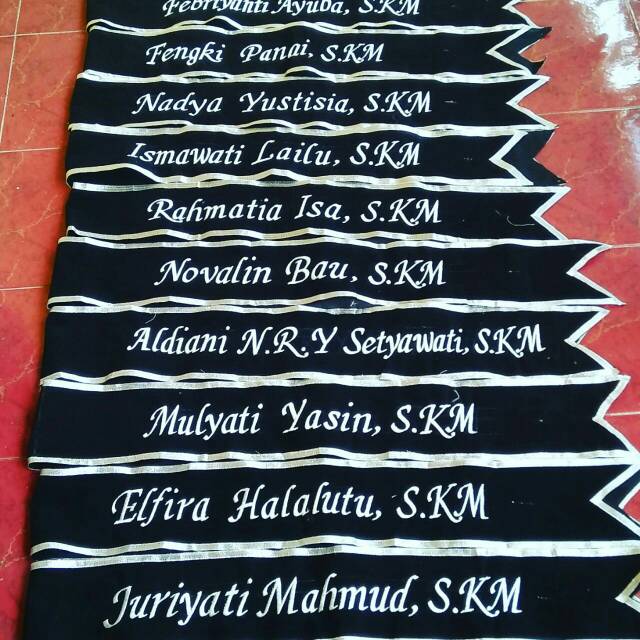 Febriyanti Ayuba, S.KM
Fengki Panai, S.KM
Nadya Yustisia, S.KM
Ismawati Lailu, S.KM
Rahmatia Isa, S.KM
Novalin Bau, S.KM
Aldiani N.R.Y Setyawati, S.KM
Mulyati Yasin, S.KM
Elfira Halalutu, S.KM
Juriyati Mahmud, S.KM